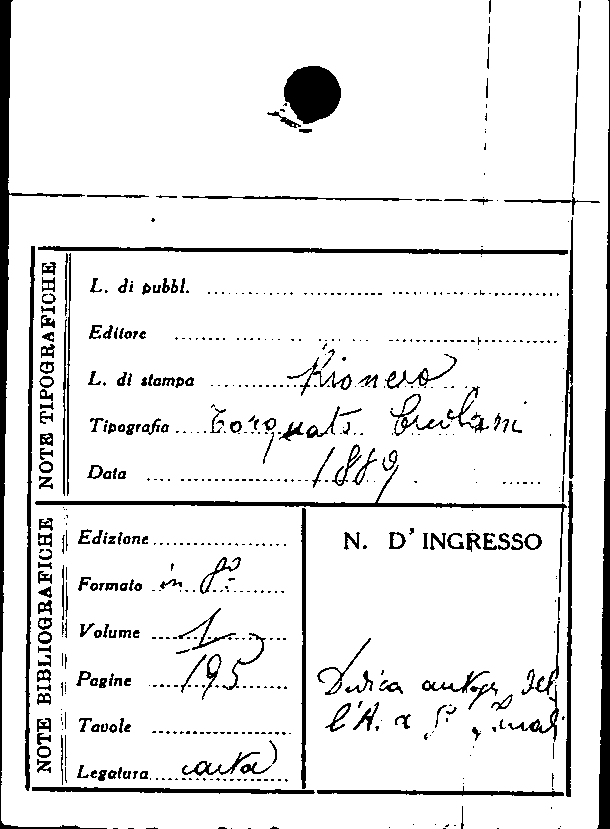 NOTE TIPOGRAFICHE
L. di pubbl.
Editore
L. di stampa Rionero
Tipografia Torquato Ercolani
Data 1889
NOTE BIBLIOGRAFICHE
Edizione
Formato in 8º
Volume 1
Pagine 195
Tavole
Legatura carta
N. D'INGRESSO
Dedica autogr. del
l'A. a